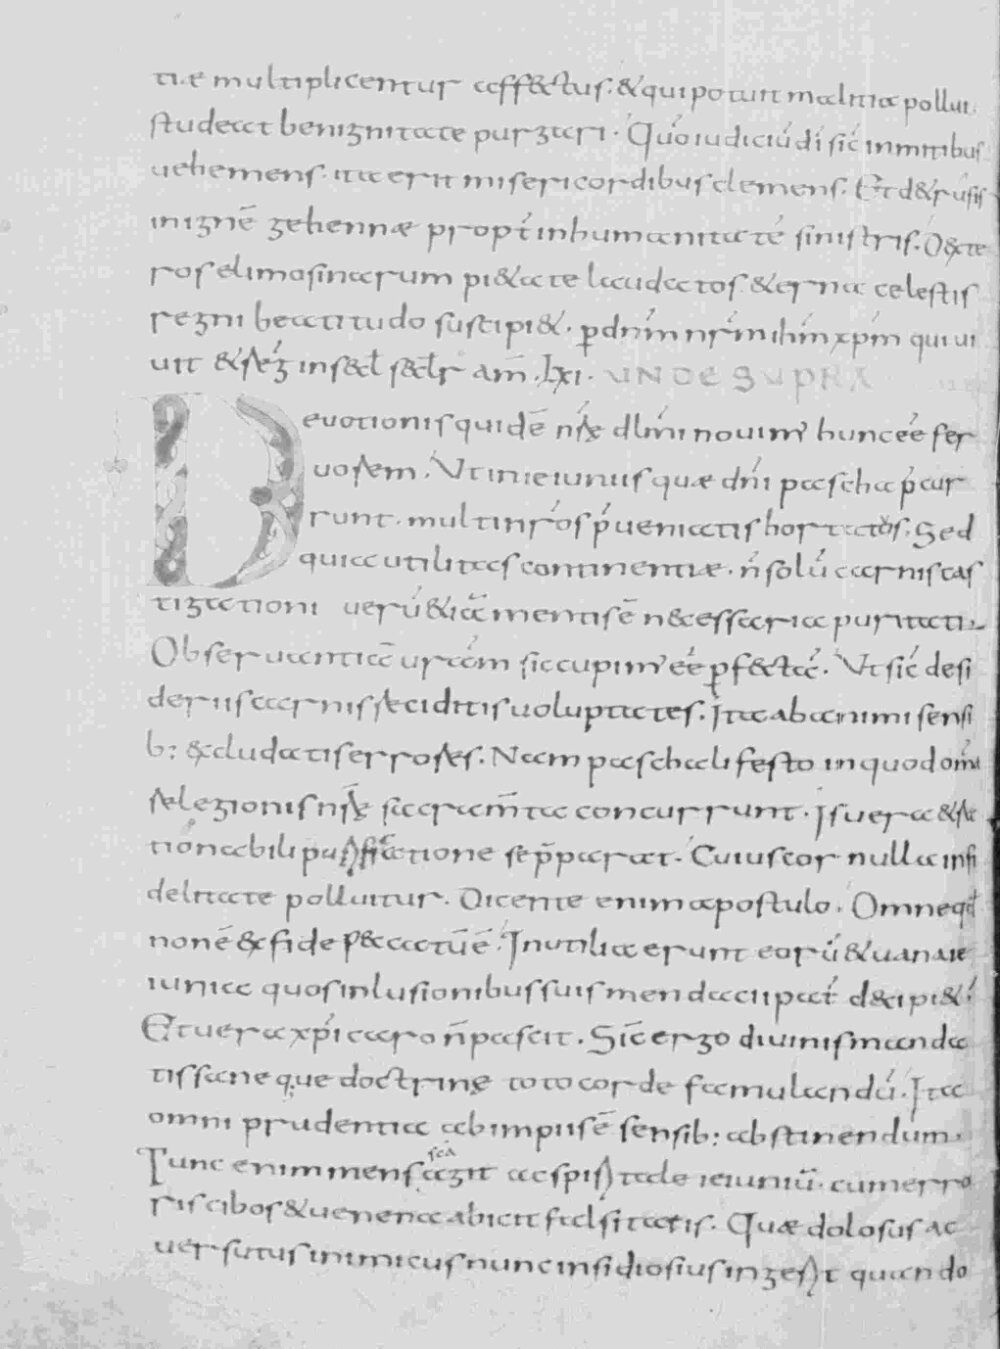 tiae multiplicentur affectus. & qui potuit malitia pollui.
studeat benignitate purgari. Quo iudiciū di sic inmitibus
uehemens. ita erit misericordibus clemens. Et detrusis
in ignē gehennae propt inhumanitatē sinistris. Dexte
ros elimosinarum pietate laudatos. &erna celestis
regni beatitudo suscipi&. p dnm nrm ihm xpm qui ui
uit & reg in secl secloR am. LXI. UNDE SUPRA
Deuotionis quidē nrę dlmi nouim' hunc eē fer
uorem. Ut in ieiuniis quae dni pascha p̄cur
runt. multi nros p̄ueniatis hortatus. Sed
quia utilitas continentiae. n̄ solū carnis cas
tigationi uerū &iā mentis ē necessaria puritati.
Obseruantiā uram sic cupim' eē pfectā. Ut sic desi
deriis carnis reciditis uoluptates. Ita ab animi sensi
b: excludatis errores. Nam paschali festo in quod omia
relegionis nrę sacram̄ta concurrunt. Is uera & ra
tionabili purificatione se p̄parat. Cuius cor nulla infi
delitate polluitur. Dicente enim apostulo. Omne qd
non ē ex fide peccatū ē. Inutilia erunt eorū & uana ie
iunia quos inlusionibus suis mendacii pat decipi&.
Et uera xpi caro n̄ pascit. Sic ergo diuinis manda
tis saneque doctrinę toto corde famulandū. Ita
omni prudentia ab impiis ē sensib: abstinendum.
Tunc enim mens sca agit ac spiritale ieiuniū. cum erro
ris cibos & uenena abicit falsitatis. Quae dolosus ac
uersutus inimicus nunc insidiosius ingerit quando